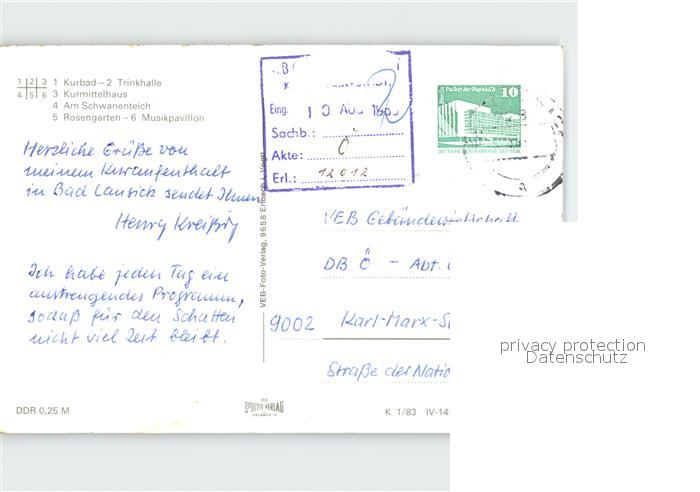 1 2 3 1 Kurbad – 2 Trinkhalle
4 5 6 3 Kurmittelhaus
4 Am Schwanenteich
5 Rosengarten – 6 Musikpavillon
Herzliche Grüße von
meinem Kuraufenthalt
in Bad Lausick sendet Ihnen
Henry Kreißig
Ich habe jeden Tag ein
anstrengendes Programm,
sodaß für den Schatten
nicht viel Zeit bleibt.
DDR 0,25 M
VEB-Foto-Verlag, 9658 Erlbach i. Vogtl.
Eing. 10 AUG
Sachb.:
Akte: Ö
Erl.: 12012
Berlin Palast der Republik 10
VEB Gebäudewirtschaft
DB Ö – Abt.
9002 Karl-Marx-St
Straße der Natio
K 1/83 IV-14
privacy protection
Datenschutz